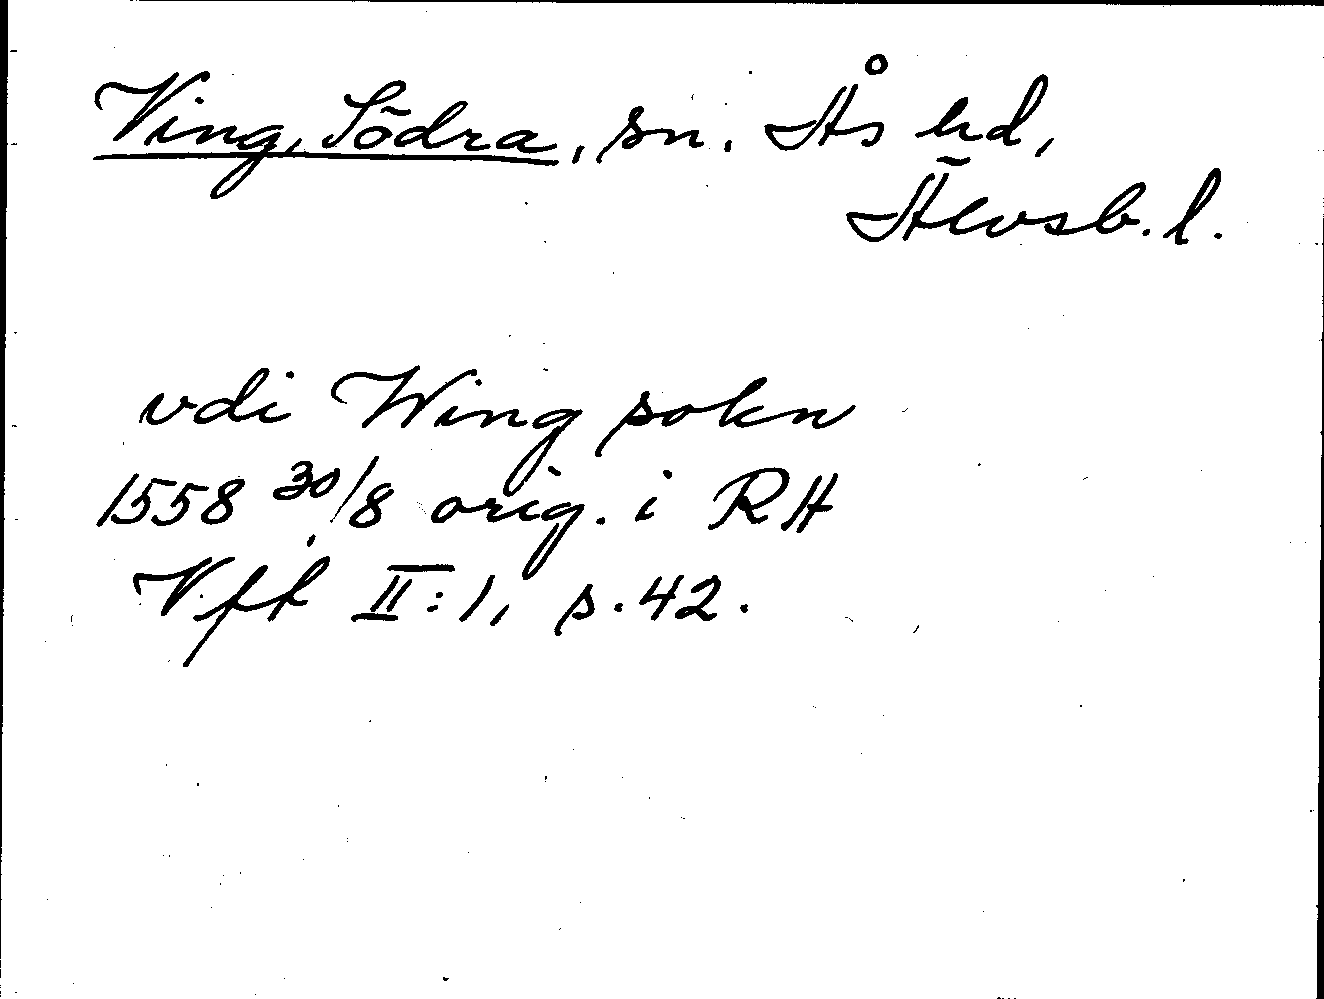 Ving, Södra, sn. Ås hd,
Älvsb. l.
vdi Wing sokn
1558 30/8 orig. i RH
Vft II:1, s. 42.